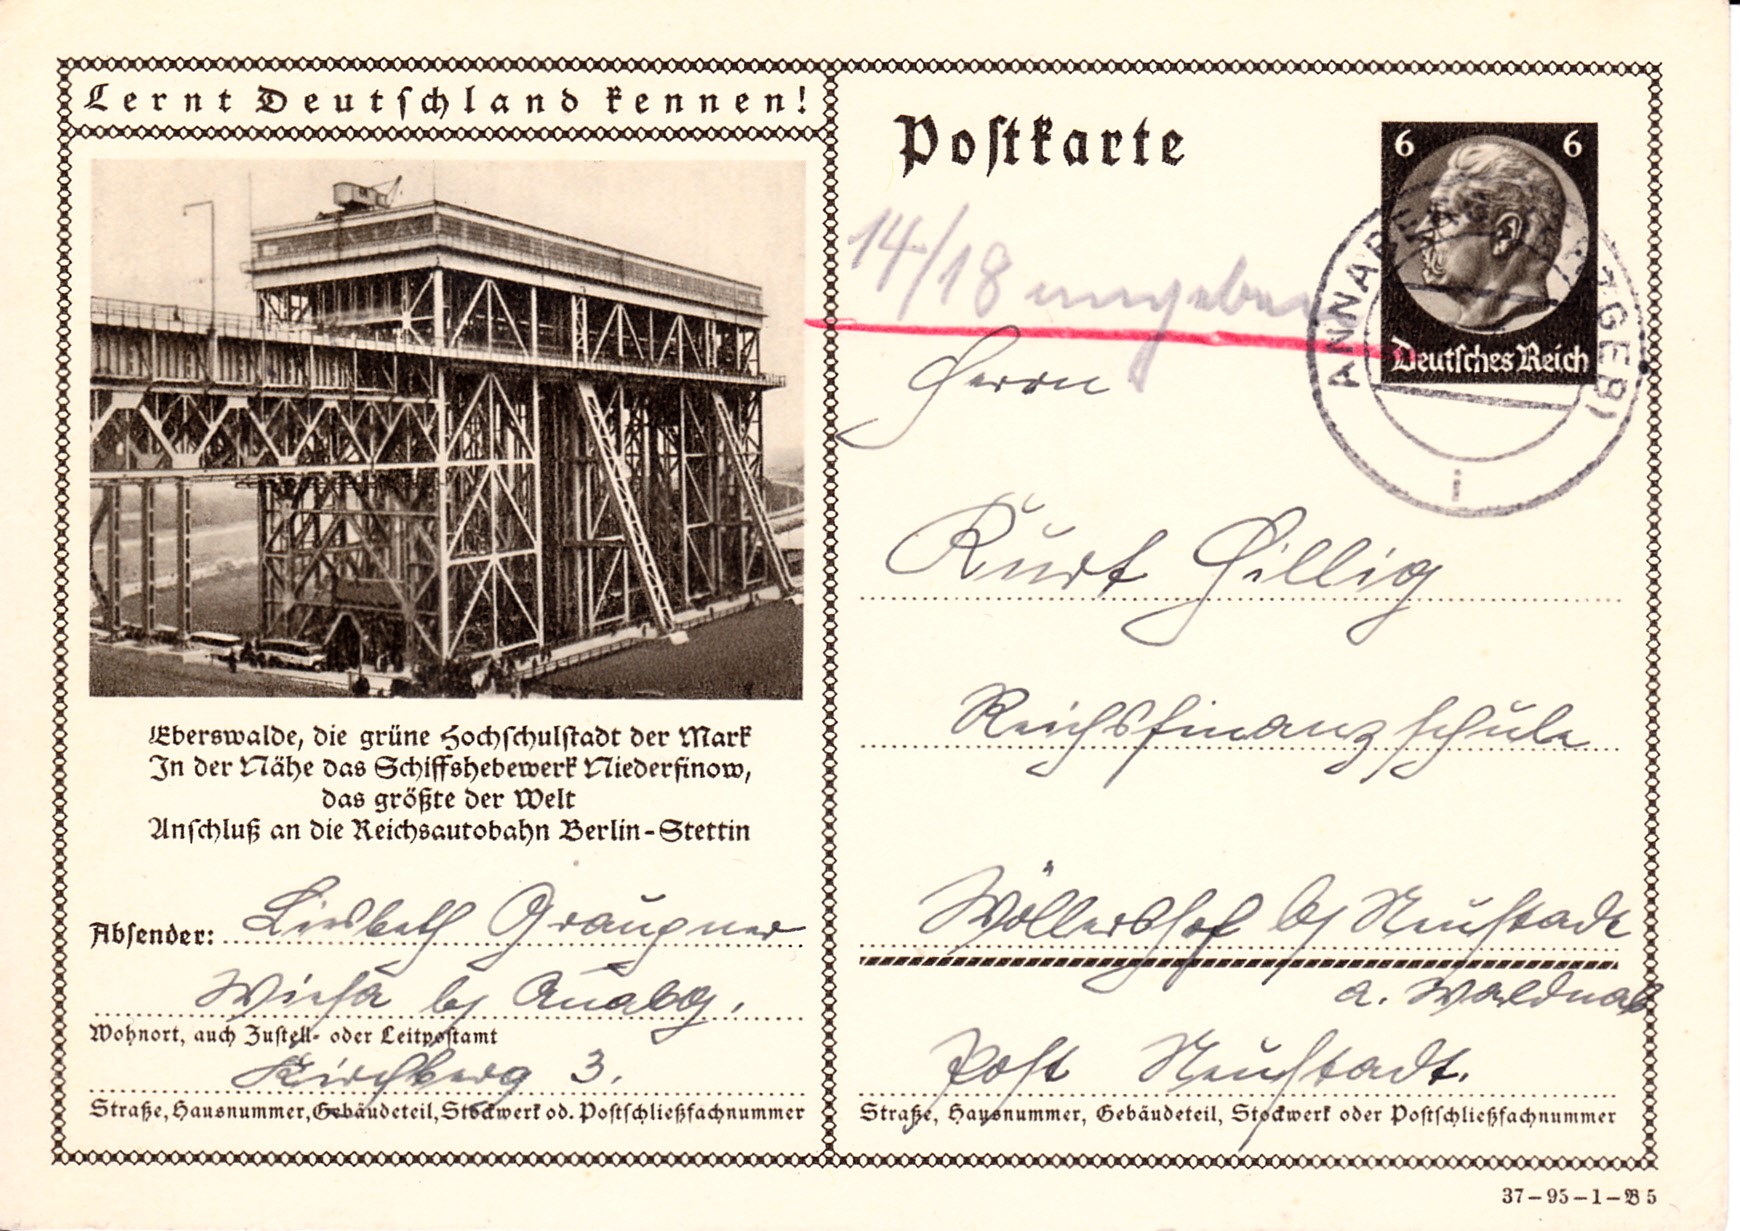 Lernt Deutschland kennen!
Eberswalde, die grüne Hochschulstadt der Mark
In der Nähe das Schiffshebewerk Niederfinow,
das größte der Welt
Anschluß an die Reichsautobahn Berlin-Stettin
Absender: Liesbeth Graupner
Wiesa b/ Annabg.
Wohnort, auch Zustell- oder Leitpostamt
Kirchberg 3.
Straße, Hausnummer, Gebäudeteil, Stockwerk od. Postschließfachnummer
Postkarte
6 6
Deutsches Reich
ANNABERG (ERZGEB)
i
14/18
Herrn
Kurt Hillig
Reichsfinanzschule
Wöllershof b/ Neustadt
a. Waldnab
Post Neustadt.
Straße, Hausnummer, Gebäudeteil, Stockwerk oder Postschließfachnummer
37-95-1-B5